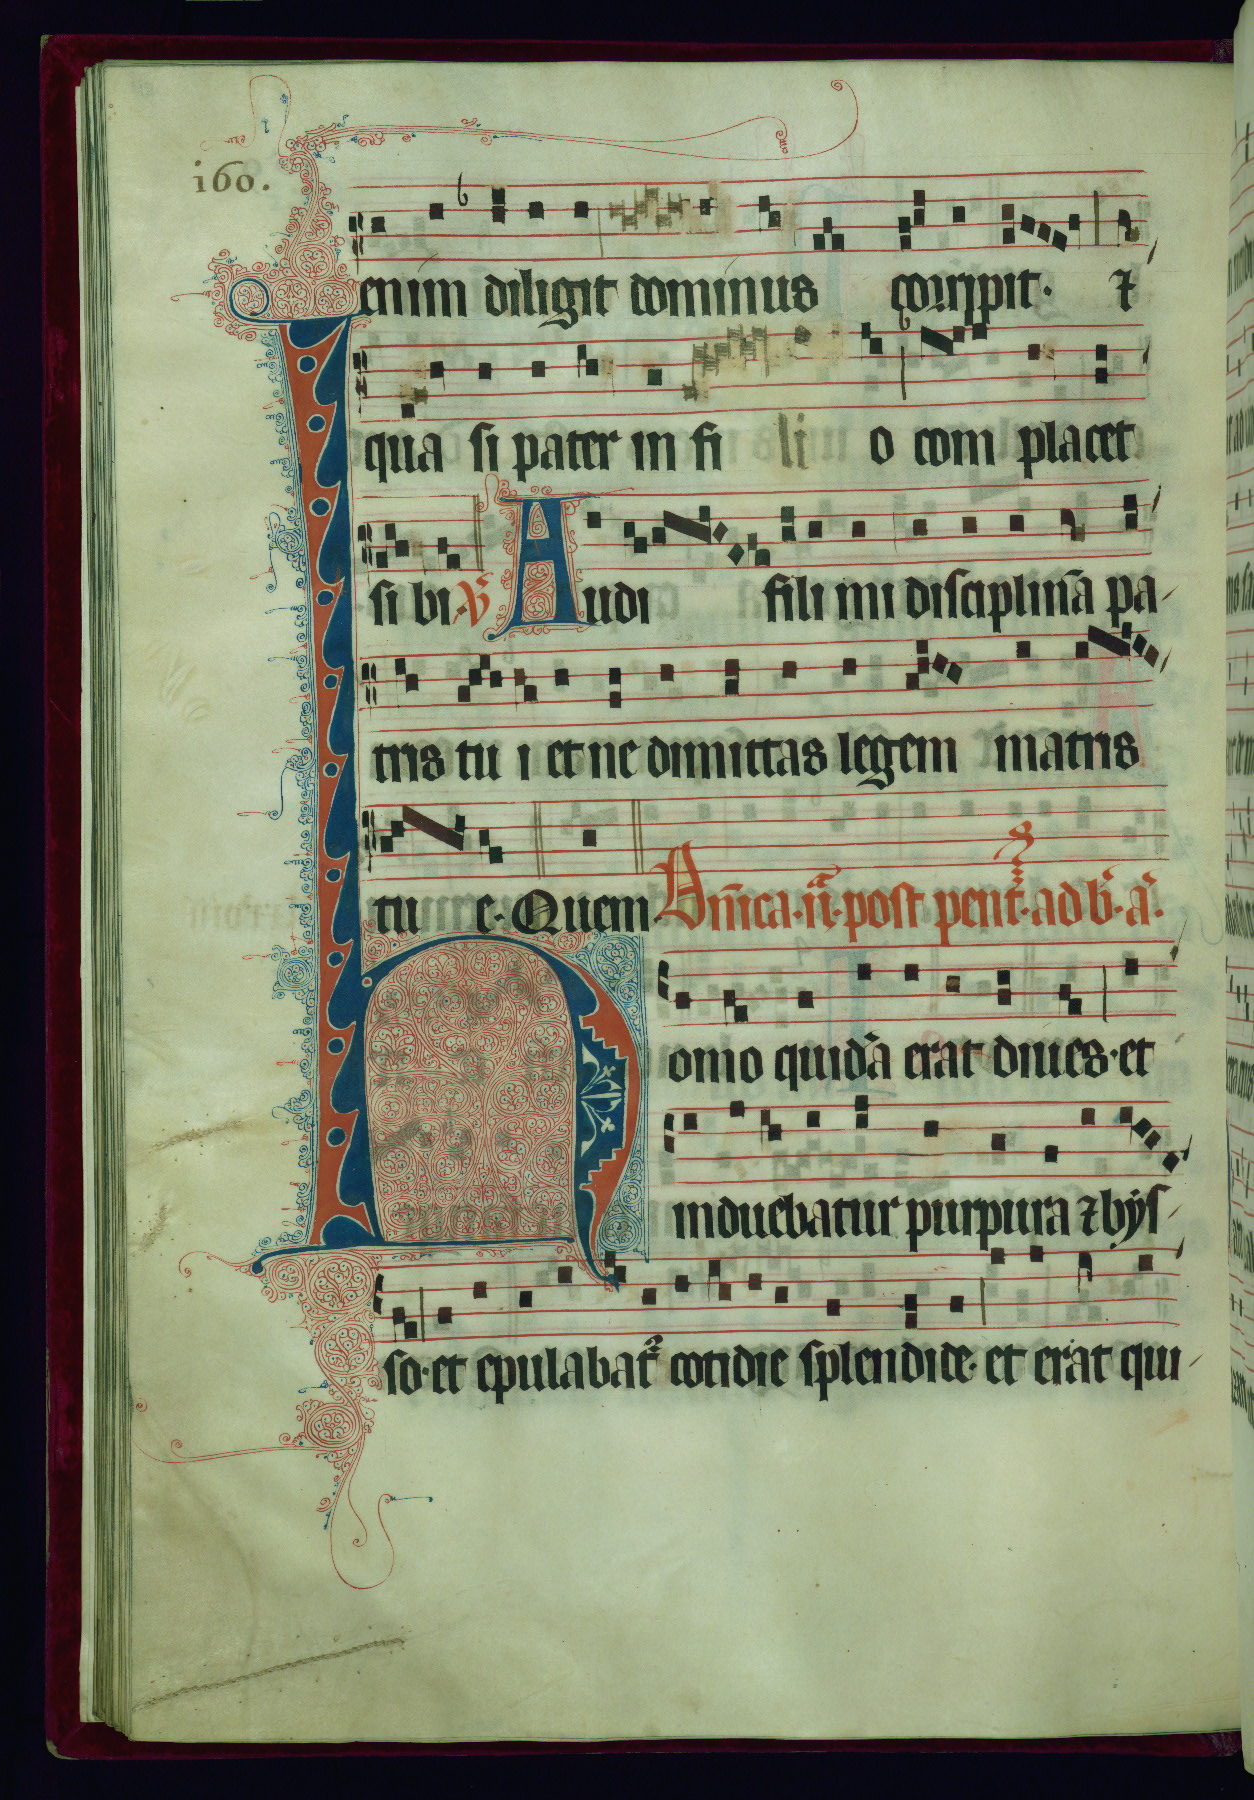 160.
enim diligit dominus corripit. ⁊
qua si pater in fi li o com placet
si bi. V̄ Audi fili mi disciplinā pa
tris tu i et ne dimittas legem matris
tu e. Quem Dn̄ica. ii. post pent̄. ad b̄. a.
Homo quidā erat dives. et
induebatur purpura ⁊ bys
so. et epulabat᷑ cotidie splendide. et erat qui